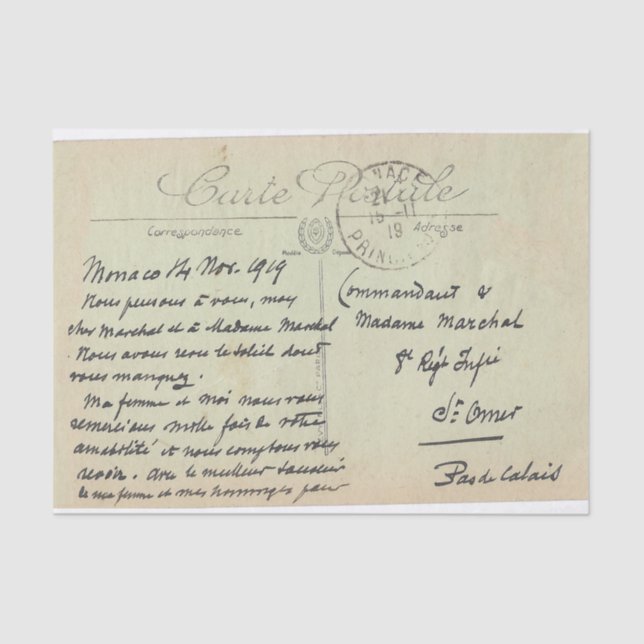 Carte Postale
Correspondance
Adresse
Modèle
21
15 -11
19
Monaco 14 Nov. 1919
Nous pensons à vous, mon
cher Marchal et à Madame Marchal
. Nous avons revu le soleil dont
vous manquez.
Ma femme et moi nous vous
remercions mille fois de votre
amabilité et nous comptons vous
revoir. Avec le meilleur souvenir
de ma femme et mes hommages pour
Commandant &
Madame Marchal
8e Régt Infie
St Omer
Pas de Calais